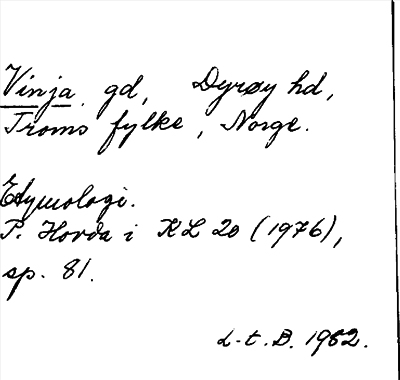 Vinja gd, Dyrøy hd,
Troms fylke, Norge.
Etymologi.
P. Hovda i KL 20 (1976),
sp. 81.
L-t. B. 1982.